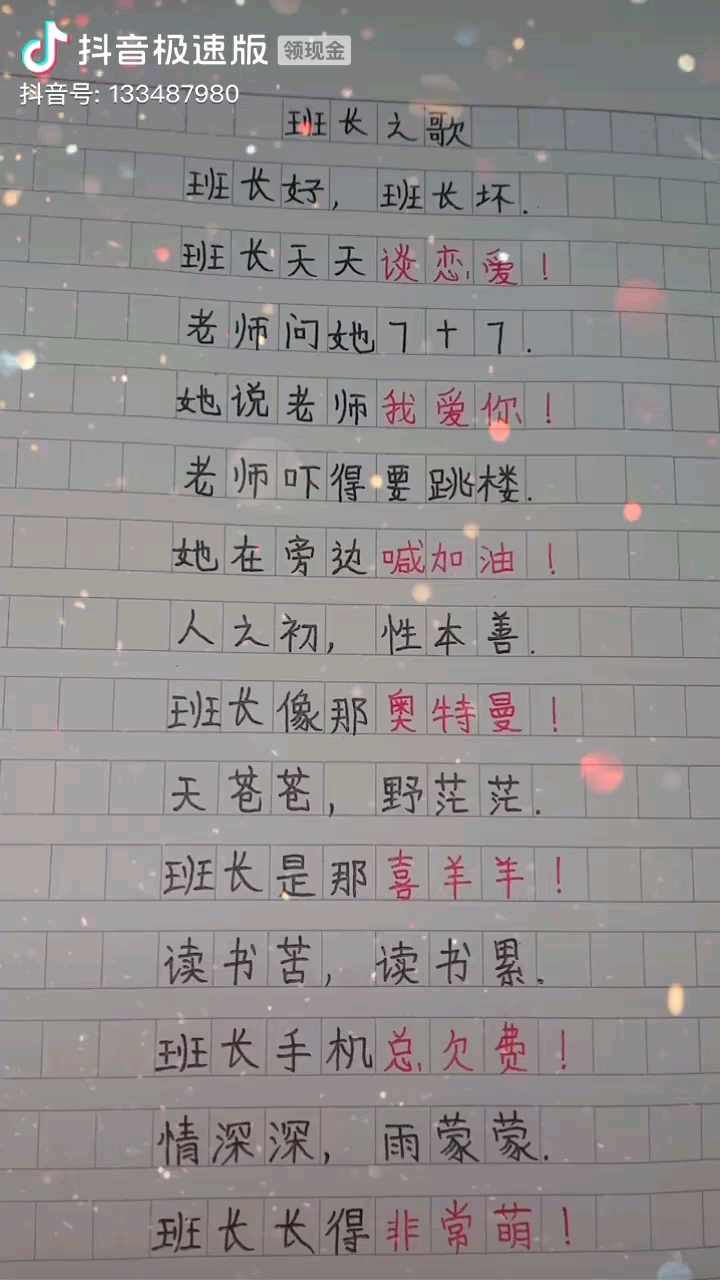 抖音极速版 领现金
抖音号: 133487980
班长之歌
班长好, 班长坏.
班长天天谈恋爱!
老师问她7+7.
她说老师我爱你!
老师吓得要跳楼.
她在旁边喊加油!
人之初, 性本善.
班长像那奥特曼!
天苍苍, 野茫茫.
班长是那喜羊羊!
读书苦, 读书累.
班长手机总欠费!
情深深, 雨蒙蒙.
班长长得非常萌!